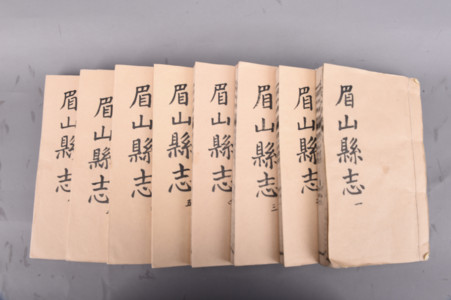 眉山縣志 一
眉山縣志
眉山縣志 三
眉山縣志
眉山縣志 五
眉山縣志
眉山縣志
眉山縣志